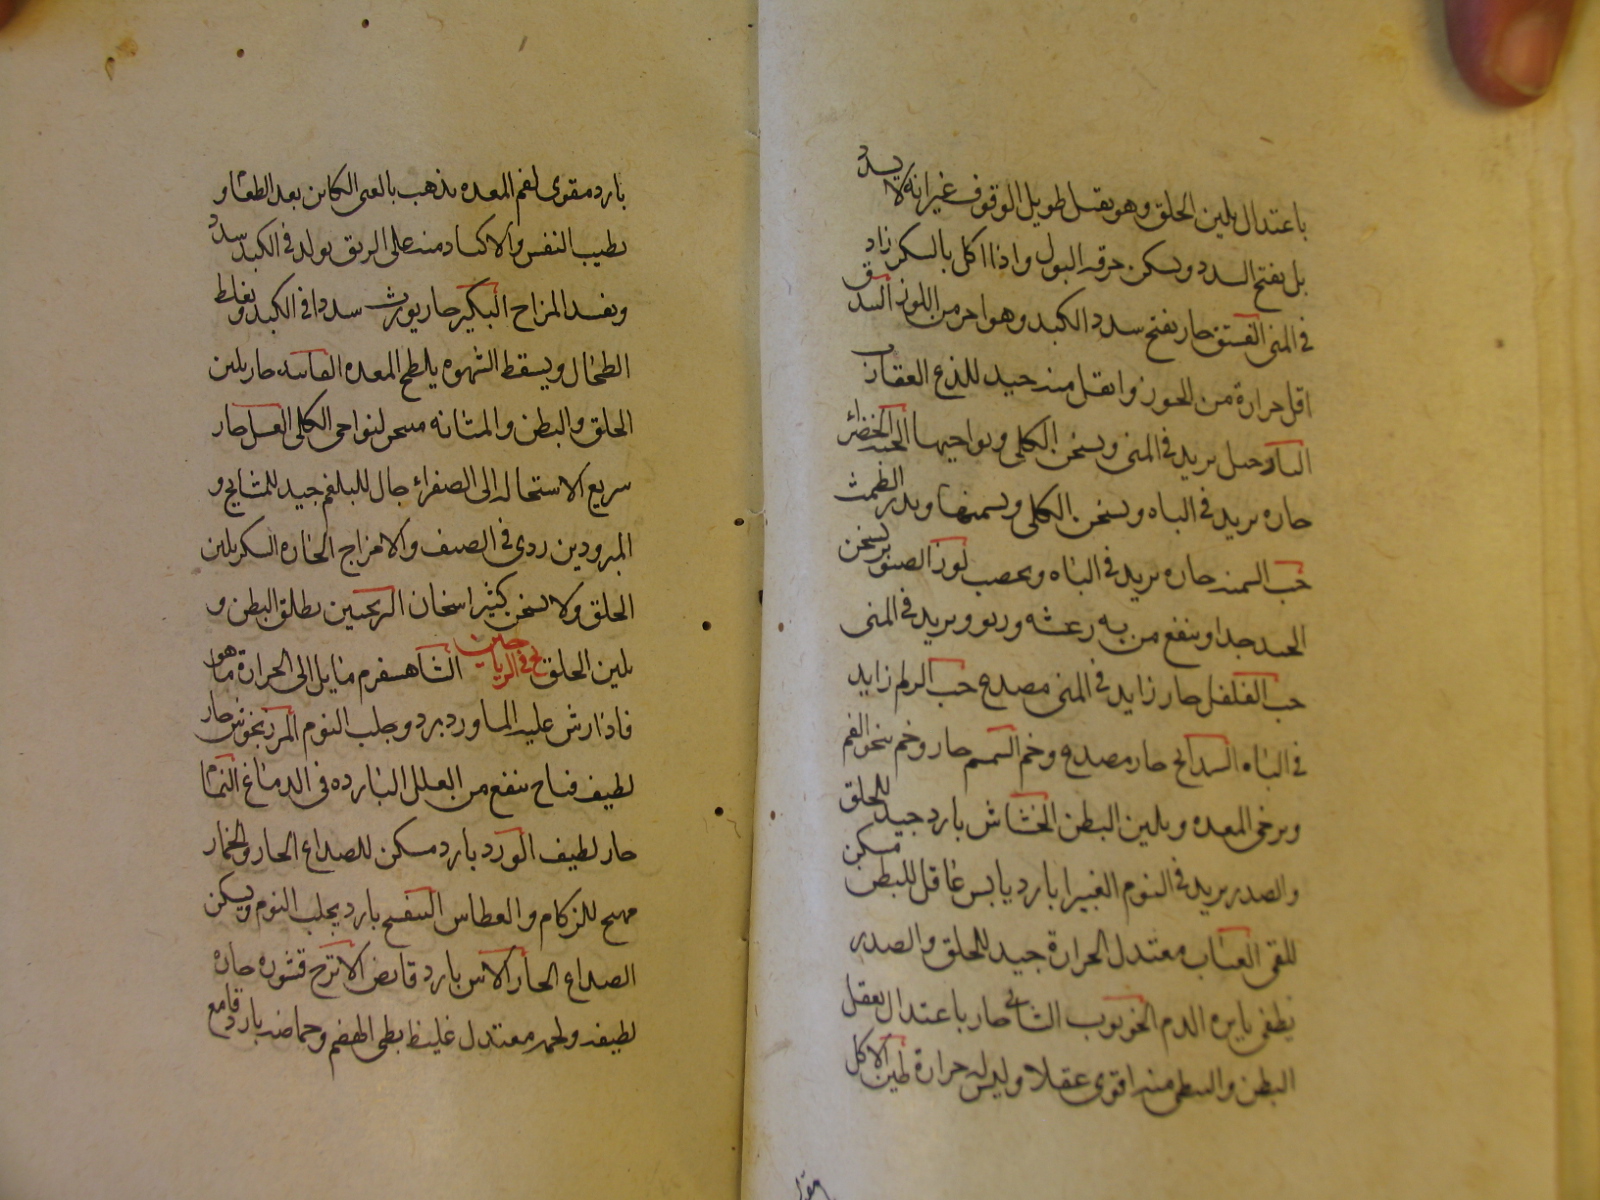 باعتدال يلين الحلق وهو يقل طويل الوقوف غير انه لا يسدد
بل يفتح السدد ويسكن حرقه البول واذا اكل بالسكر زاد
في المنى الفستق حار يفتح سدد الكبد وهو احر من اللوز البندق
اقل حرارة من الجوز واثقل منه جيد للذع العقارب
النارجيل يزيد في المنى ويسخن الكلى ونواحيها الحبه الخضراء
حاره يزيد في الباه ويسخن الكلى ويسمنها ويدر الطمث
حب السمنه حاره يزيد في الباه ويخصب لوز الصنوبر يسخن
الجسد جدا وينفع من به رعشه وربو ويزيد في المنى
حب الفلفل حار زايد في المنى مصدع حب الزلم زايد
في الباه الشهدانج حار مصدع وخم السمسم حار وخم يبخر الفم
ويرخى المعده ويلين البطن الخشخاش بارد جيد للحلق
والصدر يزيد في النوم الغبيرا بارد يابس عاقل للبطن مسكن
للقى العناب معتدل الحرارة جيد للحلق والصدر
يطفى نايره الدم الخرنوب الشامي حار باعتدال يعقل
البطن والنبطى منه اقوى عقلا وليس له حرارة طين الاكل
بارد مقوى لفم المعده يذهب بالغثى الكاين بعد الطعام و
يطيب النفس والاكثار منه على الريق يولد في الكبد سدد
ويفسد المزاج البنكير حار يورث سددا في الكبد ويغلظ
الطحال ويسقط الشهوه يلطخ المعده الفانيد حار يلين
الحلق والبطن والمثانه مسخن لنواحى الكلى العسل حار
سريع الاستحاله الى الصفراء جال للبلغم جيد للمشايخ و
المبرودين ردى في الصيف والامزاج الحاره السكر يلين
الحلق ولا يسخن كثيرا سخان الترنجبين يطلق البطن و
يلين الحلق يح في الرياحين الشاهسفرم مايل الى الحرارة ما هو
فاذا رش عليه الماورد برد وجلب النوم المرزنجوش حار
لطيف فتاح ينفع من العلل البارده في الدماغ النمام
حار لطيف الورد بارد مسكن للصداع الحار والخمار
مهيج للزكام والعطاس البنفسج بارد يجلب النوم ويسكن
الصداع الحار الاس بارد قابض الاترج قشوره حاره
لطيفه ولحمه معتدل غليظ بطى الهضم وحماضه بارد قامع